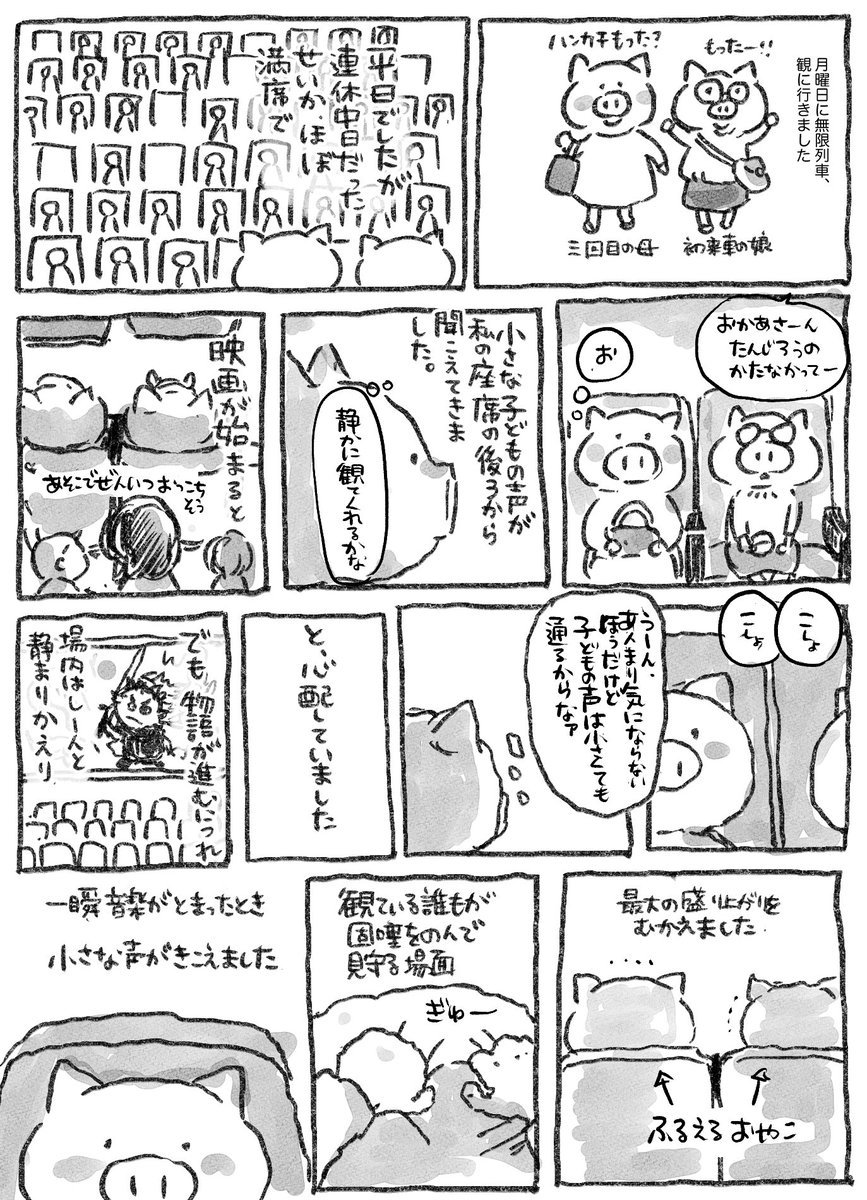 月曜日に無限列車、
観に行きました
もったー!!
ハンカチもった?
初乗車の娘
三回目の母
平日でしたが
連休中日だった
せいか、ほぼ
満席で
おかあさーん
たんじろうの
かたなかってー
お
小さな子どもの声が
私の座席の後ろから
聞こえてきま
した。
静かに観てくれるかな
映画が始まると
あそこでぜんいつおっこち
そう
こしょ
こしょ
うーん、
あんまり気にならない
ほうだけど
子どもの声は小さくても
通るからなァ
と、心配していました
でも、物語が進むにつれ
場内はしーんと
静まりかえり
最大の盛り上がりを
むかえました
....
...
ふるえるおやこ
観ている誰もが
固唾をのんで
見守る場面
ぎゅー
一瞬音楽がとまったとき
小さな声がきこえました